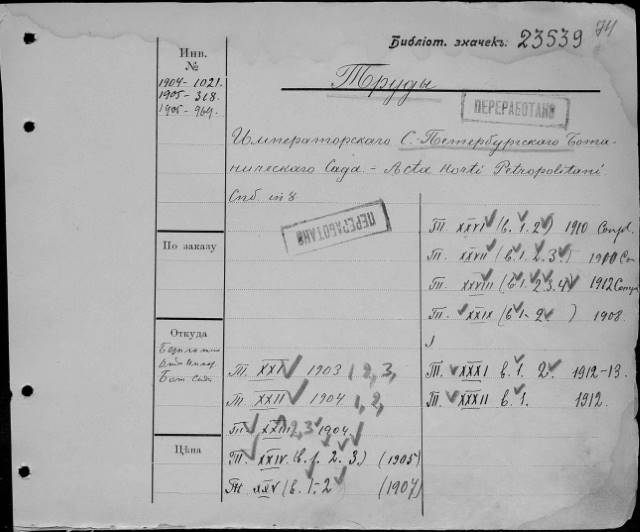 74
Библіот. значекъ: 23539
Инв.
№
1904-1021.
1905-318.
1905-969.
Труды
ПЕРЕРАБОТАНО
Императорскаго С.-Петербургскаго Бота-
ническаго Сада. - Acta Horti Petropolitani.
Спб. in 8
ПЕРЕРАБОТАНО
По заказу
Откуда
Бот. Сада
Цѣна
Т. XXI 1903 1, 2, 3,
Т. XXII 1904 1, 2,
Т. XXIII 2, 3 1904.
Т. XXIV (в. 1. 2. 3.) (1905)
Т. XXV (в. 1-2) (1907)
Т. XXVI (в. 1. 2.) 1910 Compl.
Т. XXVII (в. 1. 2. 3.) 1910 Com
Т. XXVIII (в. 1. 2. 3. 4) 1912 Comp
Т. XXIX (в 1-2 ) 1908.
Т. XXXI в. 1. 2. 1912-13.
Т. XXXII в. 1. 1912.